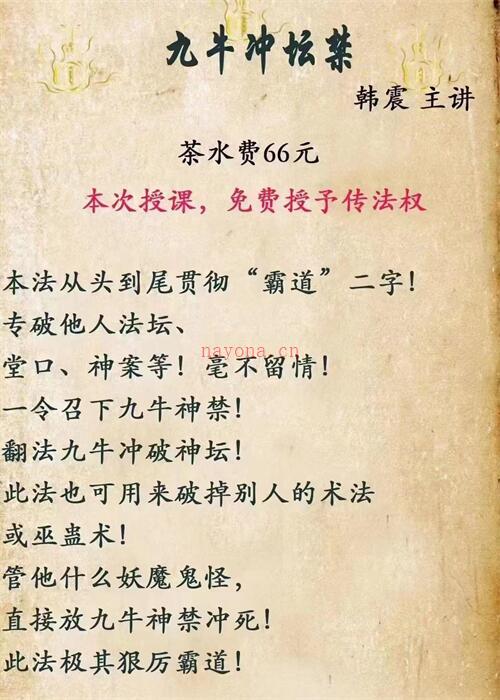 九牛冲坛禁
韩震 主讲
茶水费66元
本次授课，免费授予传法权
本法从头到尾贯彻“霸道”二字！
专破他人法坛、
nayona.cn
堂口、神案等！毫不留情！
一令召下九牛神禁！
翻法九牛冲破神坛！
此法也可用来破掉别人的术法
或巫蛊术！
管他什么妖魔鬼怪，
直接放九牛神禁冲死！
此法极其狠厉霸道！